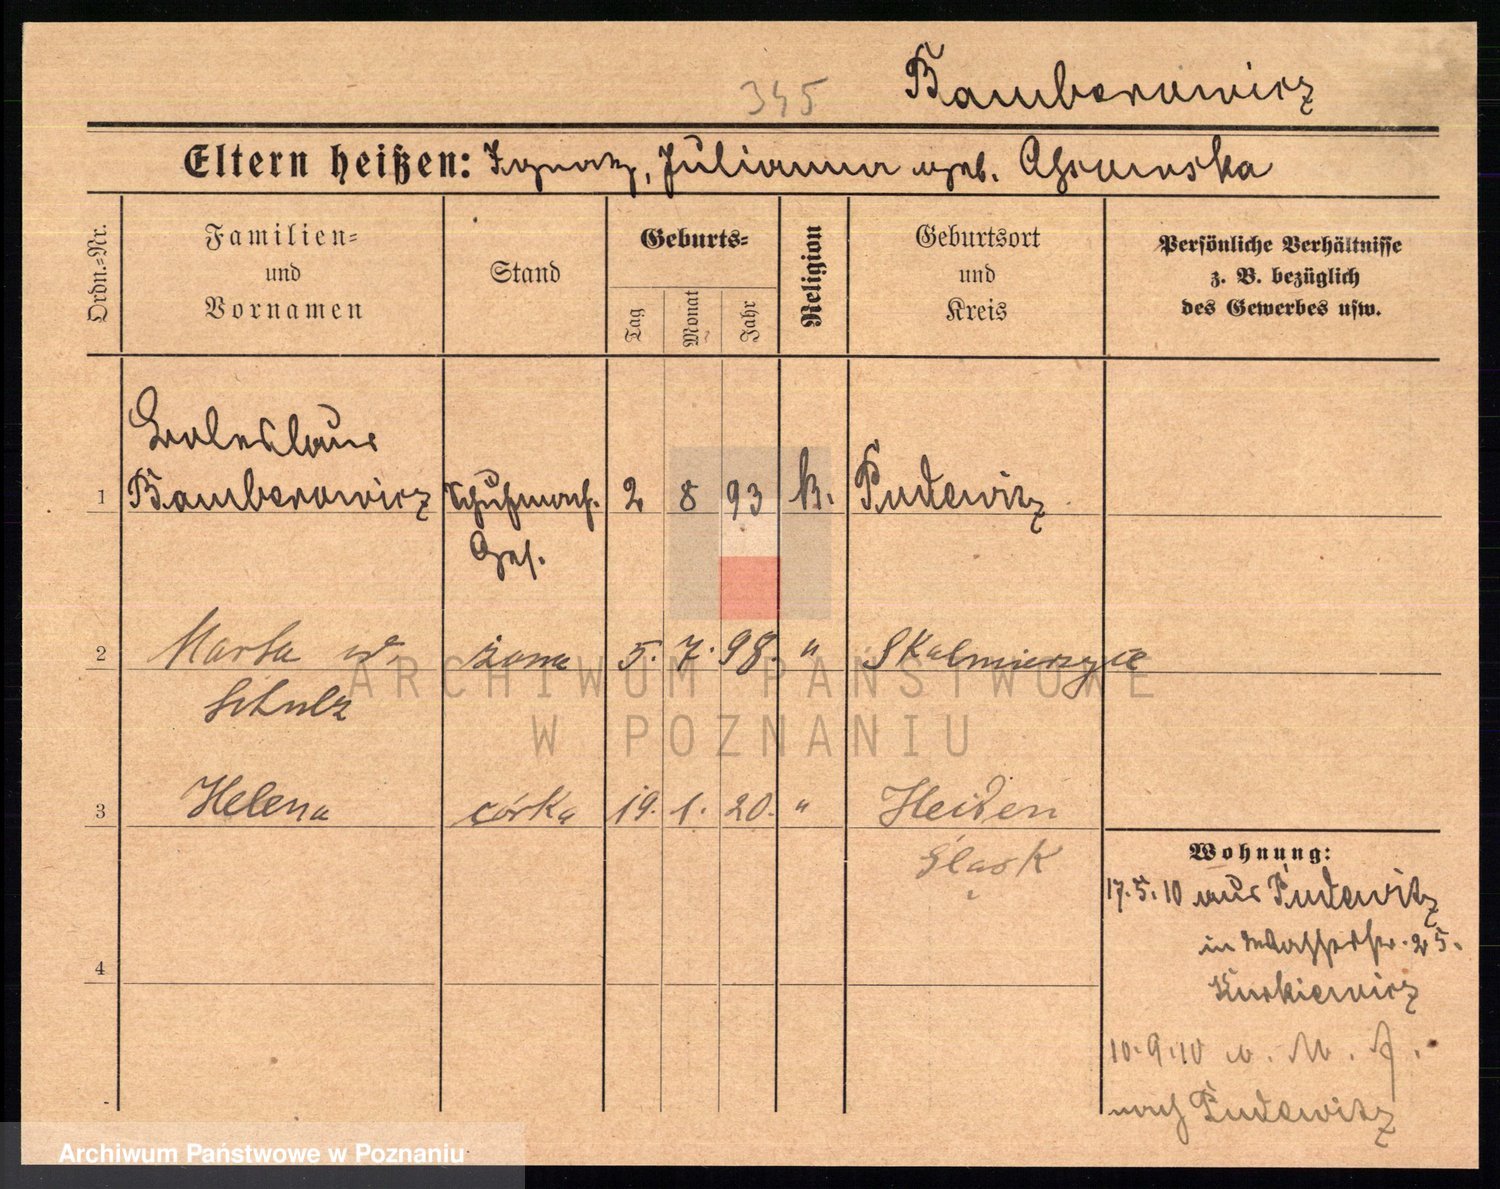 345
Bamberowicz
Eltern heißen: Ignatz, Julianna geb.
Ordn.=Nr.
Familien=
und
Vornamen
Stand
Geburts=
Tag
Monat
Jahr
Religion
Geburtsort
und
Kreis
Persönliche Verhältnisse
z. B. bezüglich
des Gewerbes usw.
Boleslaus
1 Bamberowicz Schuhmach. 2 8 93 k. Pudewitz
Ges.
2 Marta żona 5. 7. 98. " Skalmierzyce
Schulz
3 Helena córka 19. 1. 20. " Heiden
Śląsk
4
Wohnung:
17.5.10 aus Pudewitz
in Wasserstr. 25.
Kurkiewicz
10.9.10
nach Pudewitz
ARCHIWUM PAŃSTWOWE
W POZNANIU
Archiwum Państwowe w Poznaniu